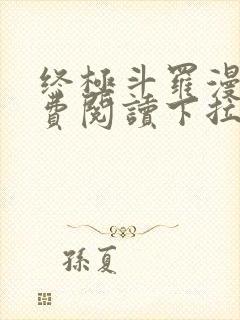 终極斗羅漫
費閱讀下拉
孫夏